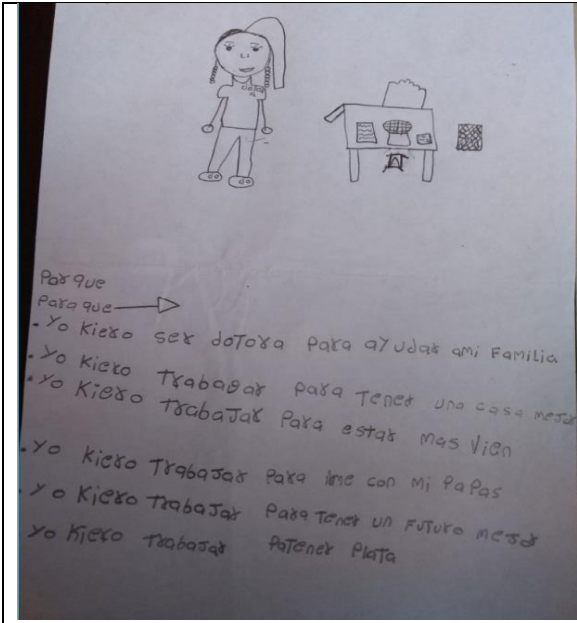 Por que
Para que
. Yo Kiero ser doTora Para ayudar ami Familia
. Yo Kiero Trabagar Para Tener una casa mejor
. Yo Kiero TrabaJar Para estar mas Vien
. Yo Kiero TrabaJar Para irme con mi PaPas
. Yo Kiero TrabaJar Para Tener un FuTuro mejor
Yo Kiero TrabaJar PaTener PlaTa